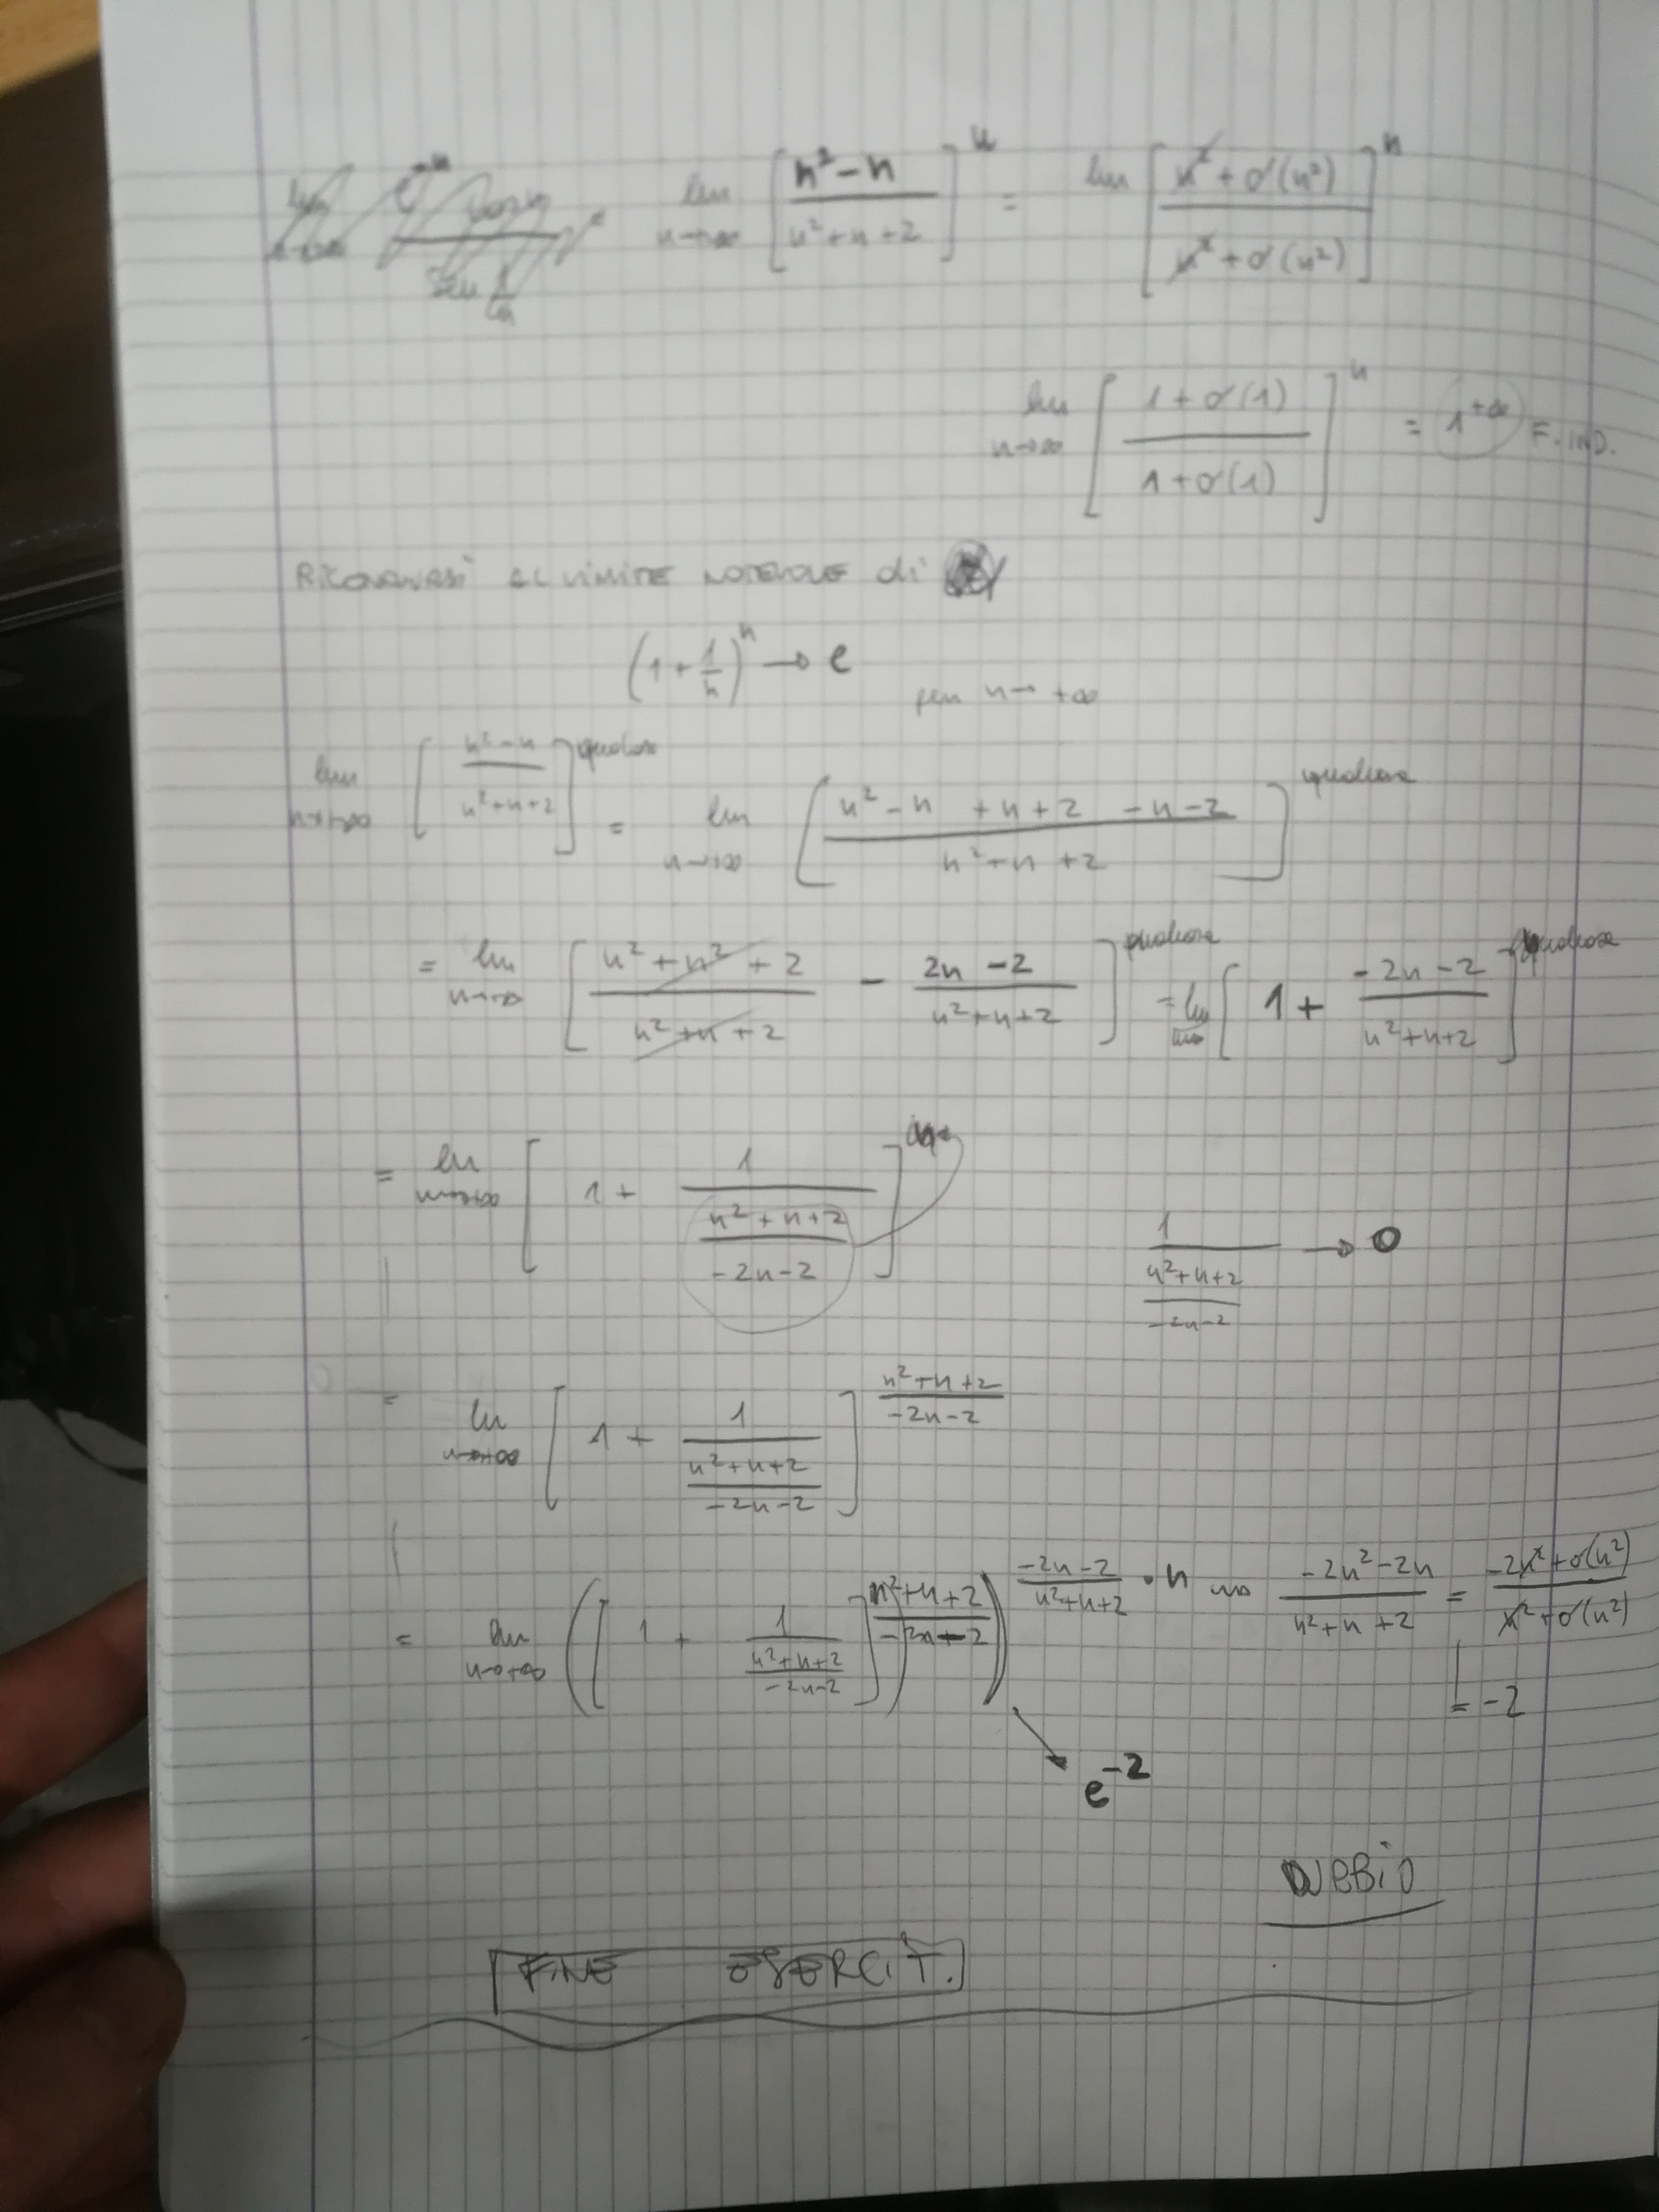 lim n→+∞ [ (n² - n) / (n² + n + 2) ]^n = lim [ (n² + o(n²)) / (n² + o(n²)) ]^n
lim n→+∞ [ (1 + o(1)) / (1 + o(1)) ]^n = 1^+∞ F. IND.
AL LIMITE NOTEVOLE di
(1 + 1/n)^n → e
per n → +∞
lim n→+∞ [ (n² - n) / (n² + n + 2) ]^qualcosa = lim n→+∞ [ (n² - n + n + 2 - n - 2) / (n² + n + 2) ]^qualcosa
= lim n→+∞ [ (n² + n² + 2) / (n² + n + 2) - (2n - 2) / (n² + n + 2) ]^qualcosa = lim [ 1 + (-2n - 2) / (n² + n + 2) ]^qualcosa
= lim n→+∞ [ 1 + 1 / ((n² + n + 2) / (-2n - 2)) ]
1 / ((n² + n + 2) / (-2n - 2)) → 0
= lim n→+∞ [ 1 + 1 / ((n² + n + 2) / (-2n - 2)) ]^((n² + n + 2) / (-2n - 2))
= lim n→+∞ ( [ 1 + 1 / ((n² + n + 2) / (-2n - 2)) ]^((n² + n + 2) / (-2n - 2)) )^((-2n - 2) / (n² + n + 2) · n) ⇝ (-2n² - 2n) / (n² + n + 2) = (-2n² + o(n²)) / (n² + o(n²))
= -2
e^-2
FINE ESERCIT.